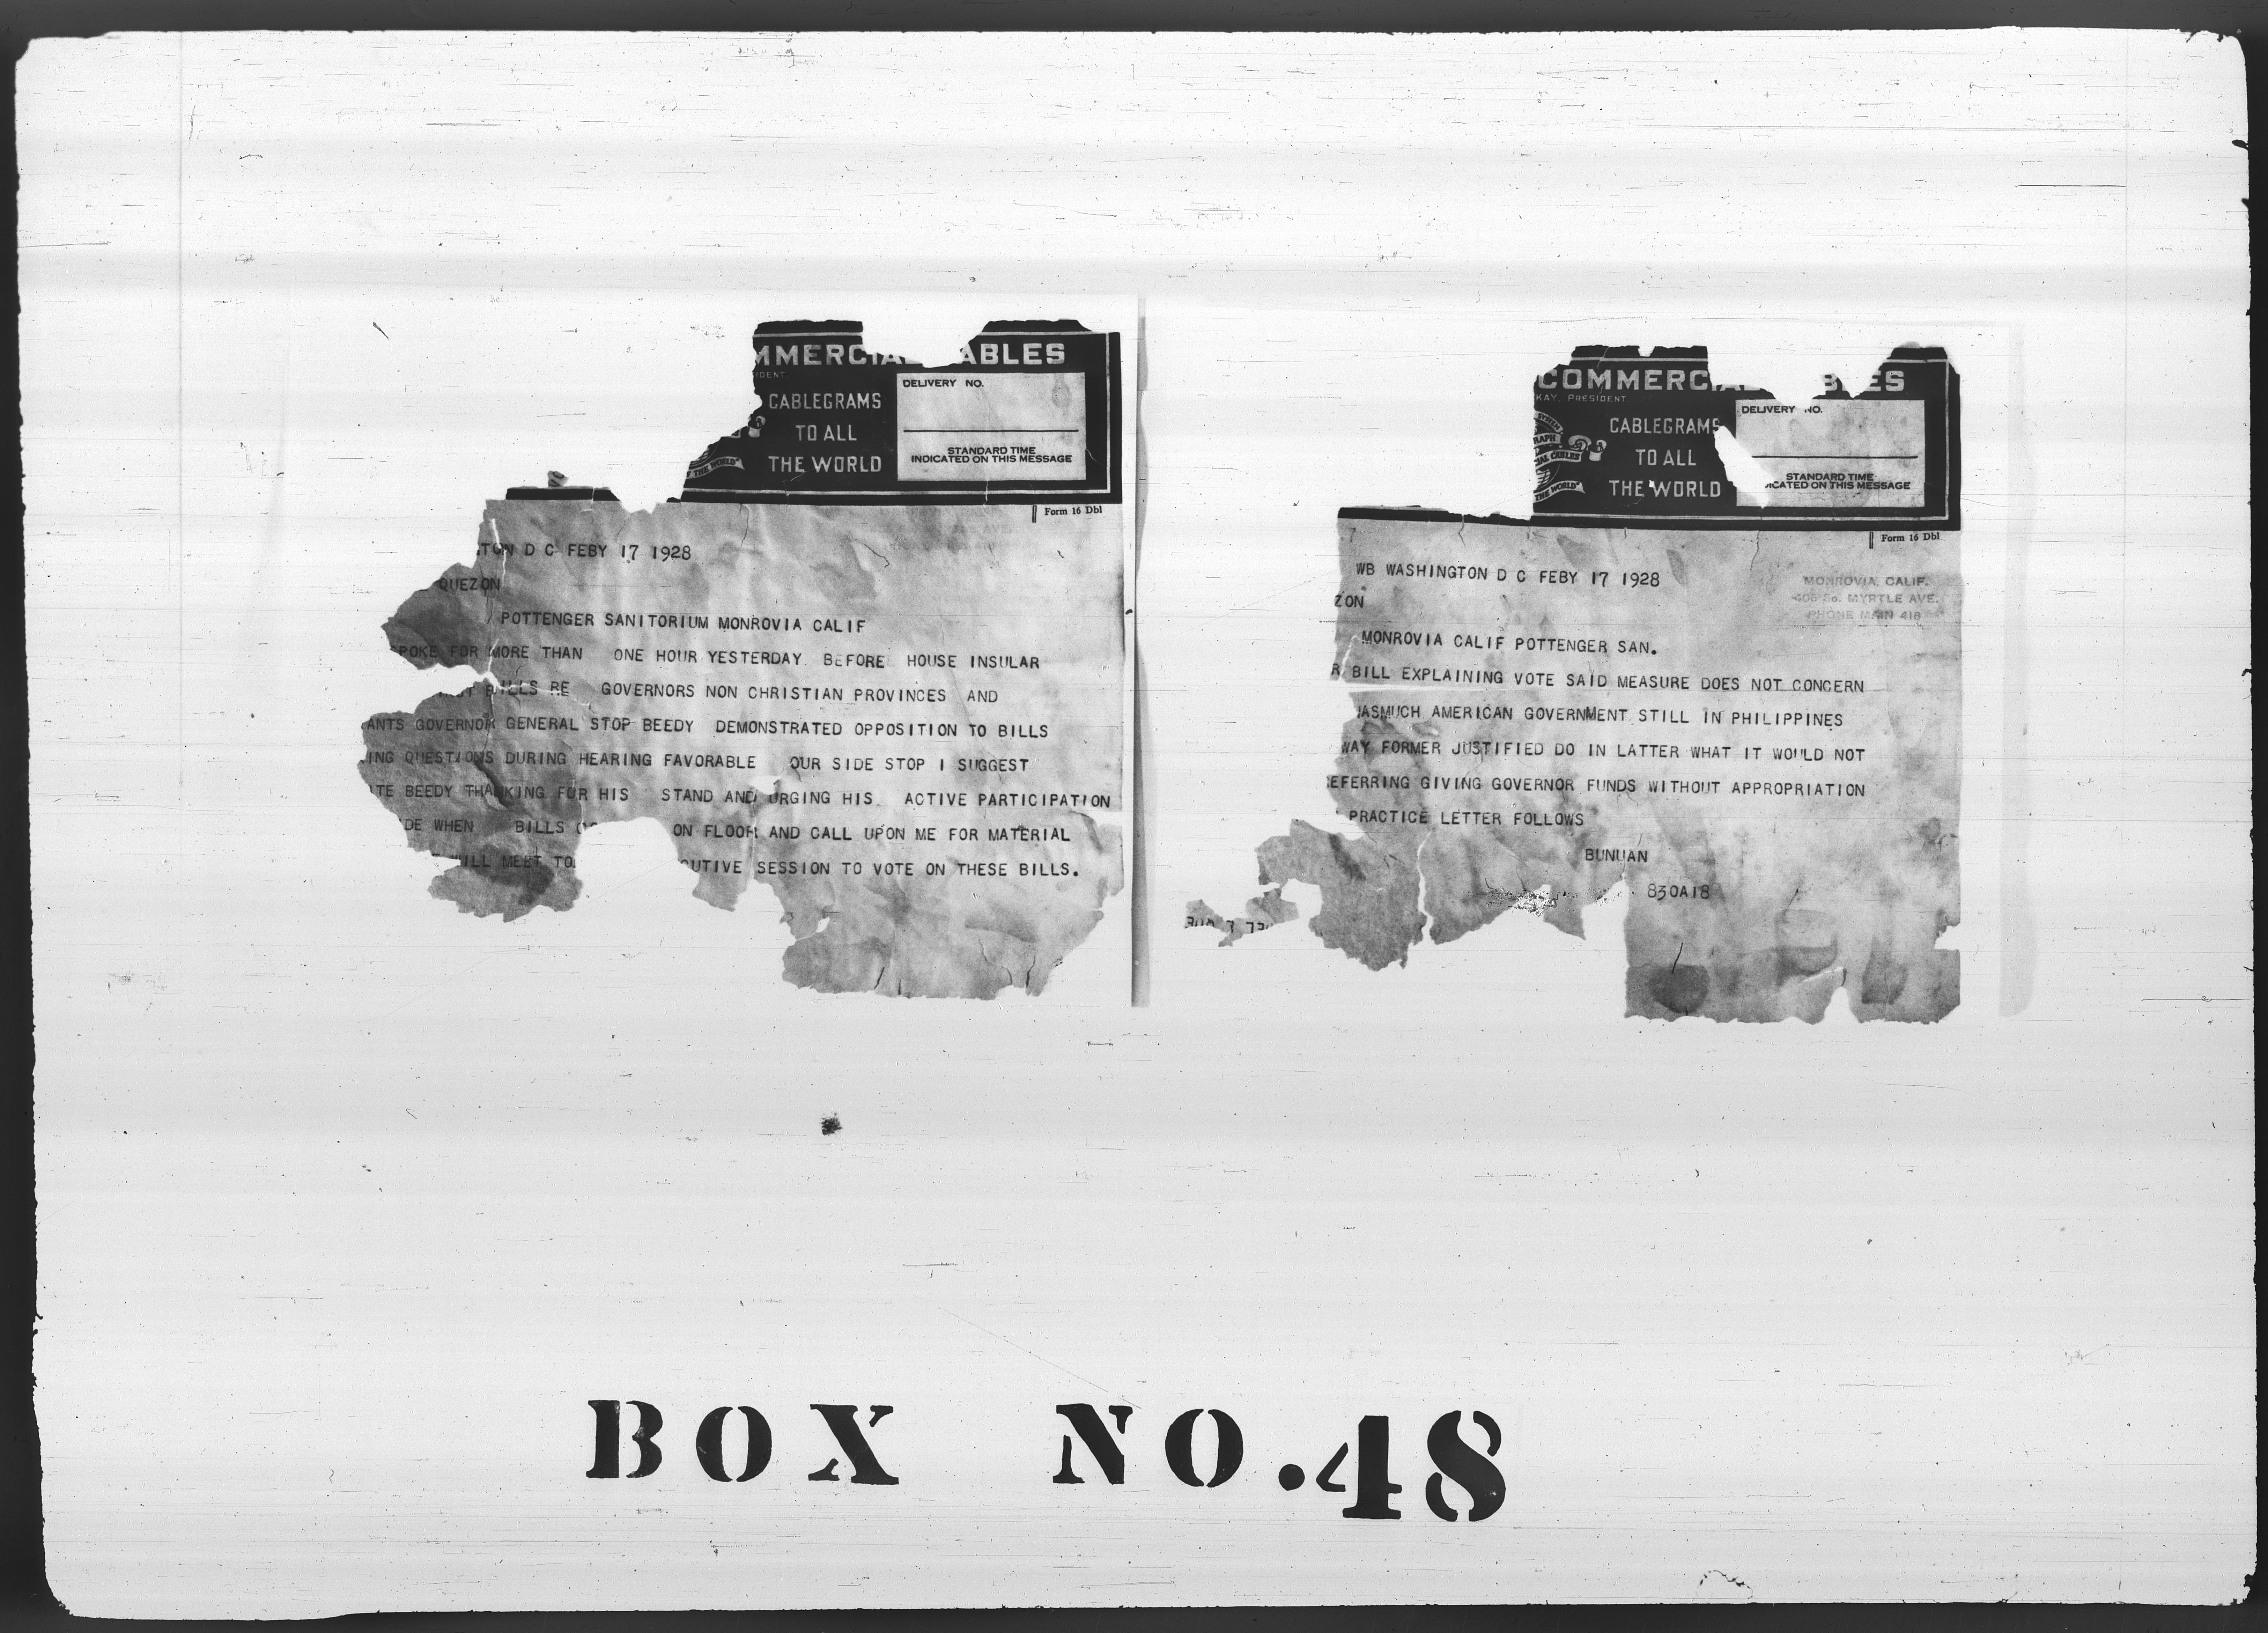 MMERCIAL CABLES
IDENT
CABLEGRAMS
TO ALL
THE WORLD
DELIVERY NO.
STANDARD TIME
INDICATED ON THIS MESSAGE
THE WORLD
Form 16 Dbl
TON D C FEBY 17 1928
QUEZON
POTTENGER SANITORIUM MONROVIA CALIF
SPOKE FOR MORE THAN ONE HOUR YESTERDAY BEFORE HOUSE INSULAR
BILLS RE GOVERNORS NON CHRISTIAN PROVINCES AND
ANTS GOVERNOR GENERAL STOP BEEDY DEMONSTRATED OPPOSITION TO BILLS
ING QUESTIONS DURING HEARING FAVORABLE OUR SIDE STOP I SUGGEST
TE BEEDY THANKING FOR HIS STAND AND URGING HIS ACTIVE PARTICIPATION
DE WHEN BILLS ON FLOOR AND CALL UPON ME FOR MATERIAL
WILL MEET TO CUTIVE SESSION TO VOTE ON THESE BILLS.
COMMERCIAL CABLES
KAY, PRESIDENT
CABLEGRAMS
TO ALL
THE WORLD
DELIVERY NO.
STANDARD TIME
ICATED ON THIS MESSAGE
THE WORLD
Form 16 Dbl
7
WB WASHINGTON D C FEBY 17 1928
MONROVIA, CALIF.
408 So. MYRTLE AVE.
PHONE MAIN 416
ZON
MONROVIA CALIF POTTENGER SAN.
R BILL EXPLAINING VOTE SAID MEASURE DOES NOT CONCERN
ASMUCH AMERICAN GOVERNMENT STILL IN PHILIPPINES
WAY FORMER JUSTIFIED DO IN LATTER WHAT IT WOULD NOT
EFERRING GIVING GOVERNOR FUNDS WITHOUT APPROPRIATION
PRACTICE LETTER FOLLOWS
BUNUAN
830A18
BOX NO.48